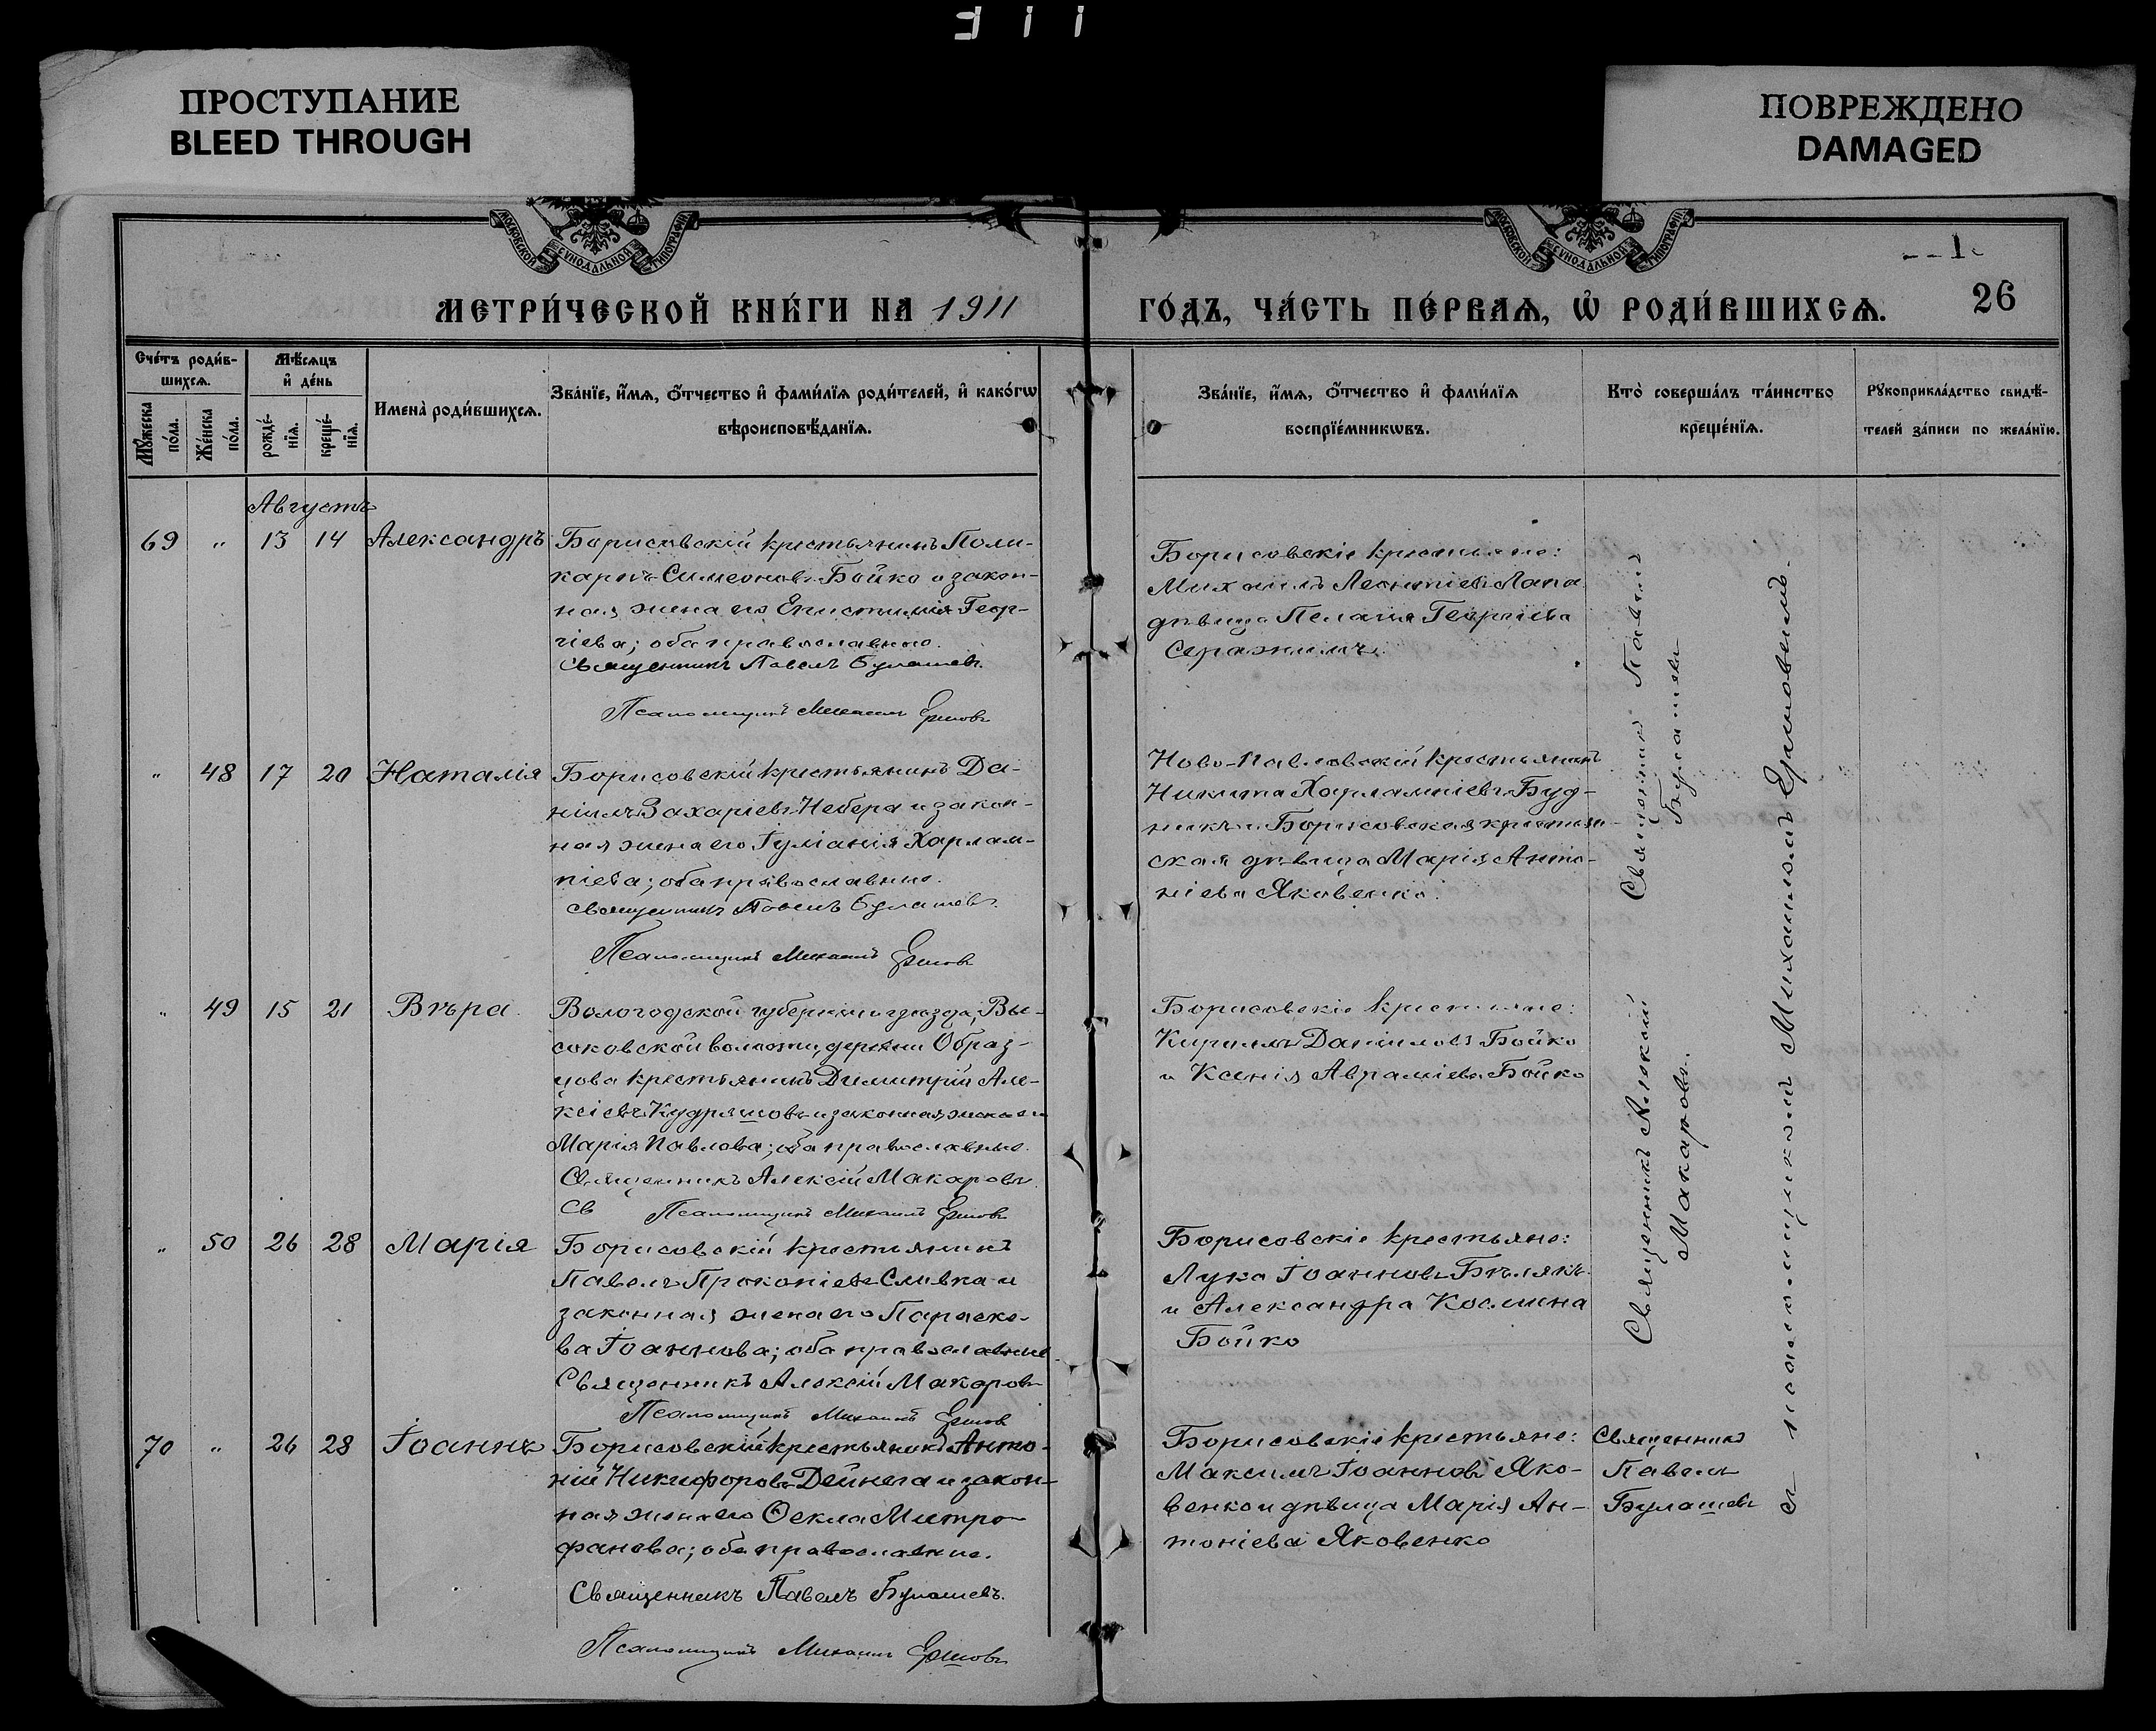 ПРОСТУПАНИЕ
BLEED THROUGH
ПОВРЕЖДЕНО
DAMAGED
МОСКОВСКОЙ СѴНОДАЛЬНОЙ ТИПОГРАФІИ
МОСКОВСКОЙ СѴНОДАЛЬНОЙ ТИПОГРАФІИ
МЕТРИ́ЧЕСКОЙ КНИ́ГИ НА 1911
ГО́ДЪ, ЧА́СТЬ ПЕ́РВАѦ, Ѡ҆ РОДИ́ВШИХСѦ.
26
Сче́тъ роди́в-
шихсѧ.
Мѣ́сѧцъ
и҆ де́нь
Мꙋ́жеска
по́ла.
Же́нска
по́ла.
рожде́-
нїѧ.
креще́-
нїѧ.
Имена̀ роди́вшихсѧ.
Зва́нїе, и҆́мѧ, ѻ҆́тчество и҆ фами́лїѧ роди́телей, и҆ како́гѡ
вѣроисповѣ́данїѧ.
Зва́нїе, и҆́мѧ, ѻ҆́тчество и҆ фами́лїѧ
воспрїе́мникѡвъ.
Кто̀ соверша́лъ та́инство
креще́нїѧ.
Рꙋкоприкла́дство свидѣ́-
телей за́писи по жела́нїю.
Августъ
69 " 13 14 Александръ
Борисовскій крестьянинъ Поли-
карпъ Симеоновъ Бойко и закон-
ная жена его Епистимія Геор-
гіева; оба православные.
Священникъ Павелъ Булашевъ.
Псаломщикъ Михаилъ Ершовъ
Борисовскіе крестьяне:
Михаилъ Леонтіевъ Лапа
дѣвица Пелагія Георгіева
" 48 17 20 Наталія
Борисовскій крестьянинъ Да-
ніилъ Захаріевъ Небера и закон-
ная жена его Іуліанія Харлам-
піева; оба православные.
Священникъ Павелъ Булашевъ.
Псаломщикъ Михаилъ Ершовъ
Ново-Павловскій крестьянинъ
Никита Харлампіевъ Буд-
никъ и Борисовская крестьян-
ская дѣвица Марія Анто-
ніева Яковенко.
Священникъ Павелъ
Булашевъ
" 49 15 21 Вѣра.
Вологодской губерніи и уѣзда, Вы-
соковской волости, деревни Образ-
цова крестьянинъ Димитрій Але-
ксіевъ Кудряшовъ и законная жена его
Марія Павлова; оба православные.
Священникъ Алексій Макаровъ
Св Псаломщикъ Михаилъ Ершовъ
Борисовскіе крестьяне:
Кириллъ Даніиловъ Бойко
и Ксенія Авраміева Бойко
Священникъ Алексій
Макаровъ.
" 50 26 28 Марія
Борисовскій крестьянинъ
Павелъ Прокопіевъ Сливка и
законная жена его Параске-
ва Іоаннова; оба православные
Священникъ Алексій Макаровъ
Псаломщикъ Михаилъ Ершов
Борисовскіе крестьяне:
Лука Іоанновъ Бѣлякъ
и Александра Космина
Бойко
70 " 26 28 Іоаннъ
Борисовскій крестьянинъ Анто-
ній Никифоровъ Дейнега и закон-
ная жена его Ѳекла Митро-
фанова; оба православные.
Священникъ Павелъ Булашевъ.
Псаломщикъ Михаилъ Ершовъ
Борисовскіе крестьяне:
Максимъ Іоанновъ Яко-
венко и дѣвица Марія Ан-
тоніева Яковенко
Священникъ
Павелъ
Булашевъ
съ псаломщикомъ Михаиломъ Ершовымъ.